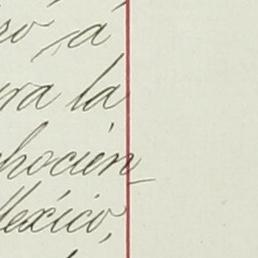 so á
ra la
hocien-
México,